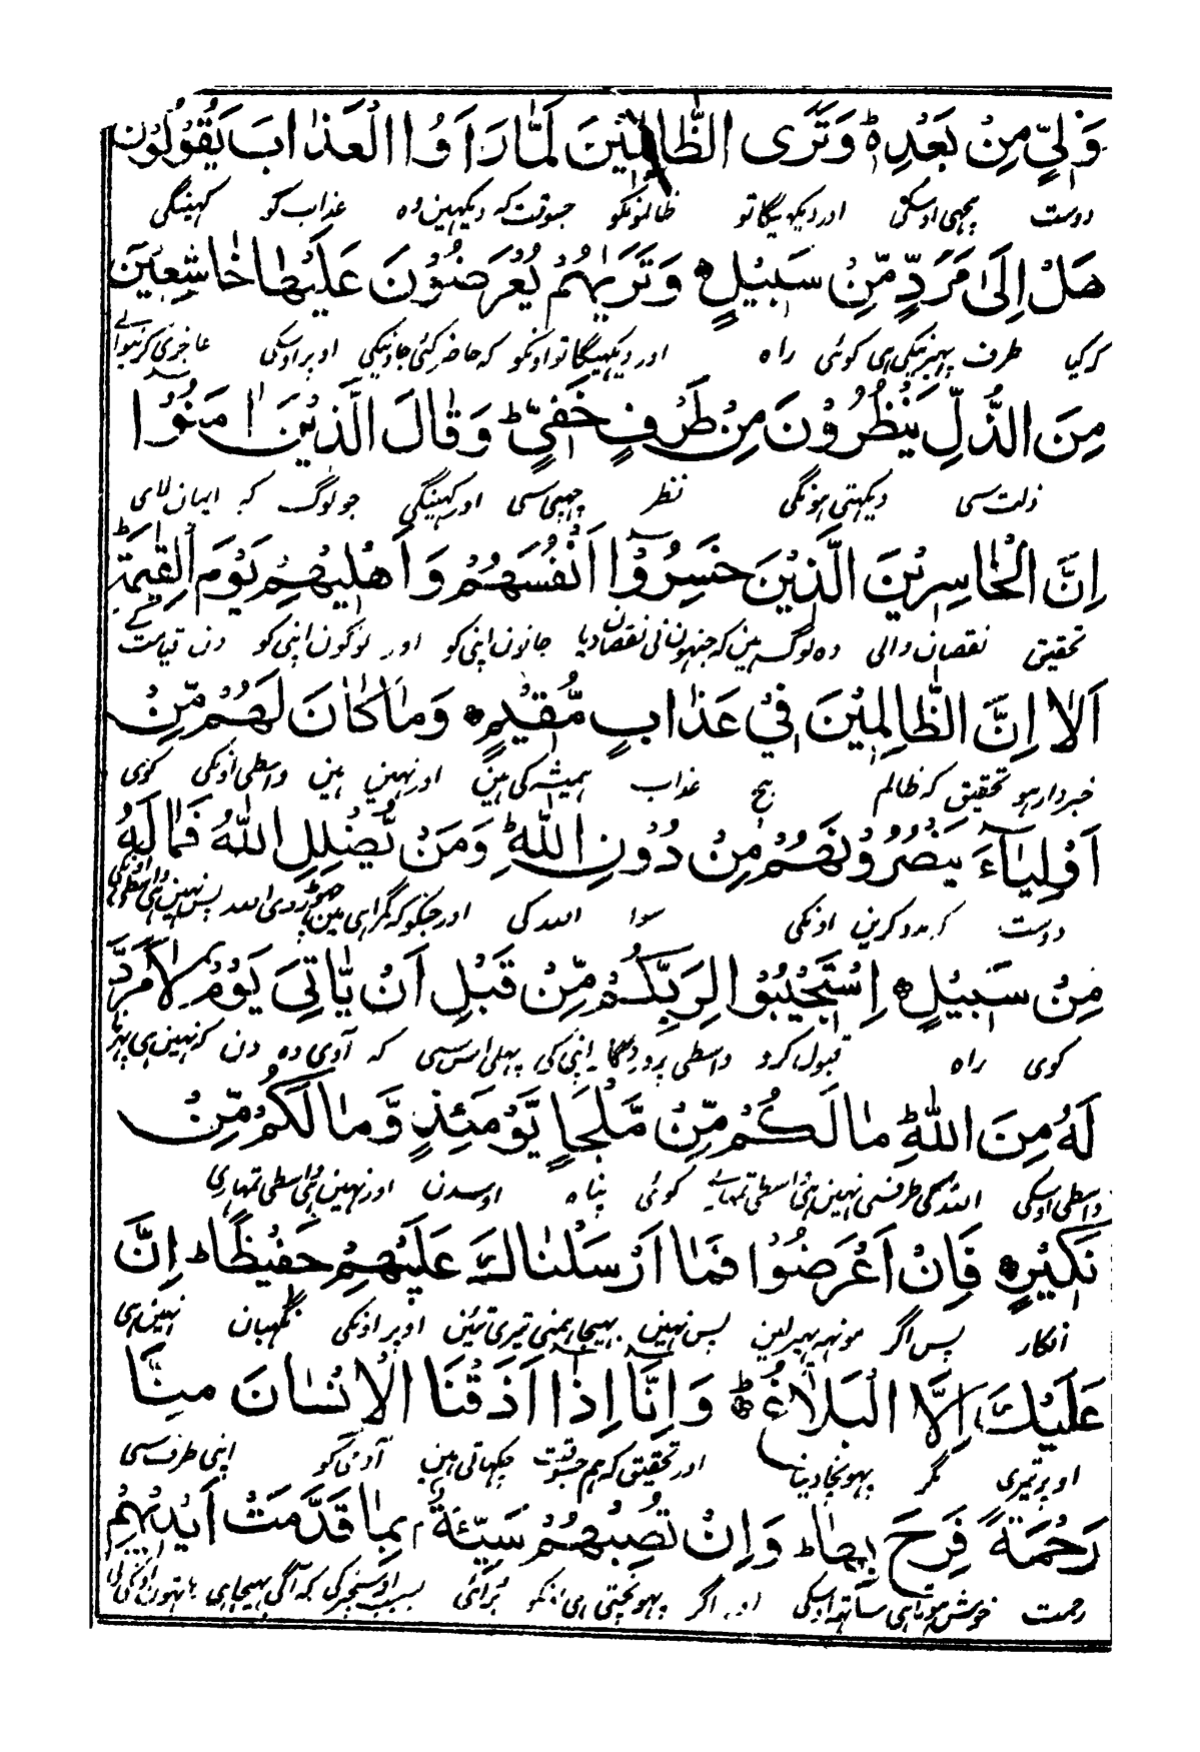 وَّلِيٍّ مِنْ بَعْدِهٖ ط وَتَرَى الظَّالِمِيْنَ لَمَّا رَاَوُا الْعَذَابَ يَقُوْلُوْنَ
دوست پیچھی اوسکی اور دیکھیگا تو ظالمونکو جسوقت کہ دیکھین وہ عذاب کو کہینگی
هَلْ اِلٰى مَرَدٍّ مِّنْ سَبِيْلٍ ۝ وَتَرٰىهُمْ يُعْرَضُوْنَ عَلَيْهَا خَاشِعِيْنَ
کہ کیا طرف پہر نیکی ہی کوئی راہ اور دیکھیگا تو اونکو کہ حاضر کئی جاوینگی اوپر اوسکی عاجزی کرنیوالے
مِنَ الذُّلِّ يَنْظُرُوْنَ مِنْ طَرْفٍ خَفِيٍّ ط وَقَالَ الَّذِيْنَ اٰمَنُوْٓا
ذلت سی دیکھتی ہونگی نظر چھپی سی اور کہینگی جو لوگ کہ ایمان لای
اِنَّ الْخَاسِرِيْنَ الَّذِيْنَ خَسِرُوْٓا اَنْفُسَهُمْ وَاَهْلِيْهِمْ يَوْمَ الْقِيٰمَةِ ط
تحقیق نقصان والی وہ لوگ ہین کہ جنہون نی نقصان دیا جانون اپنی کو اور لوگون اپنی کو دن قیامت کے
اَلَآ اِنَّ الظَّالِمِيْنَ فِيْ عَذَابٍ مُّقِيْمٍ ۝ وَمَا كَانَ لَهُمْ مِّنْ
خبردار ہو تحقیق کہ ظالم بیچ عذاب ہمیشہ کی ہین اور نہین ہین واسطی اونکی کوی
اَوْلِيَآءَ يَنْصُرُوْنَهُمْ مِنْ دُوْنِ اللّٰهِ ط وَمَنْ يُّضْلِلِ اللّٰهُ فَمَا لَهٗ
دوست کہ مدد کرین اونکی سوا اللہ کی اور جسکو کہ گمراہی مین چھوڑ دی اللہ پس نہین ہی واسطی اونکی
مِنْ سَبِيْلٍ ۝ اِسْتَجِيْبُوْا لِرَبِّكُمْ مِّنْ قَبْلِ اَنْ يَّاْتِيَ يَوْمٌ لَّا مَرَدَّ
کوی راہ قبول کرو واسطی پروردگار اپنی کی پہلی اس سی کہ آوی وہ دن کہ نہین ہی پہرنا
لَهٗ مِنَ اللّٰهِ ط مَا لَكُمْ مِّنْ مَّلْجَاٍ يَّوْمَئِذٍ وَّمَا لَكُمْ مِّنْ
واسطی اوسکی اللہ کی طرف سی نہین ہی واسطی تمہاری کوئی پناہ اوسدن اور نہین ہی واسطی تمہاری
نَّكِيْرٍ ۝ فَاِنْ اَعْرَضُوْا فَمَا اَرْسَلْنَاكَ عَلَيْهِمْ حَفِيْظًا ط اِنَّ
انکار پس اگر مونہہ پہیر لین پس نہین بہیجا ہمنی تیری تئین اوپر اونکی نگہبان نہین ہی
عَلَيْكَ اِلَّا الْبَلَاغُ ط وَاِنَّآ اِذَآ اَذَقْنَا الْاِنْسَانَ مِنَّا
اوپر تیری مگر پہونچا دینا اور تحقیق کہ ہم جسوقت چکھاتی ہین آدمی کو اپنی طرف سی
رَحْمَةً فَرِحَ بِهَا ط وَاِنْ تُصِبْهُمْ سَيِّئَةٌۢ بِمَا قَدَّمَتْ اَيْدِيْهِمْ
رحمت خوش ہوتا ہی ساتھ اوسکی اور اگر پہونچتی ہی اونکو برائی بسبب اوس چیز کی کہ آگی بہیجا ہی ہاتھون اونکی نی